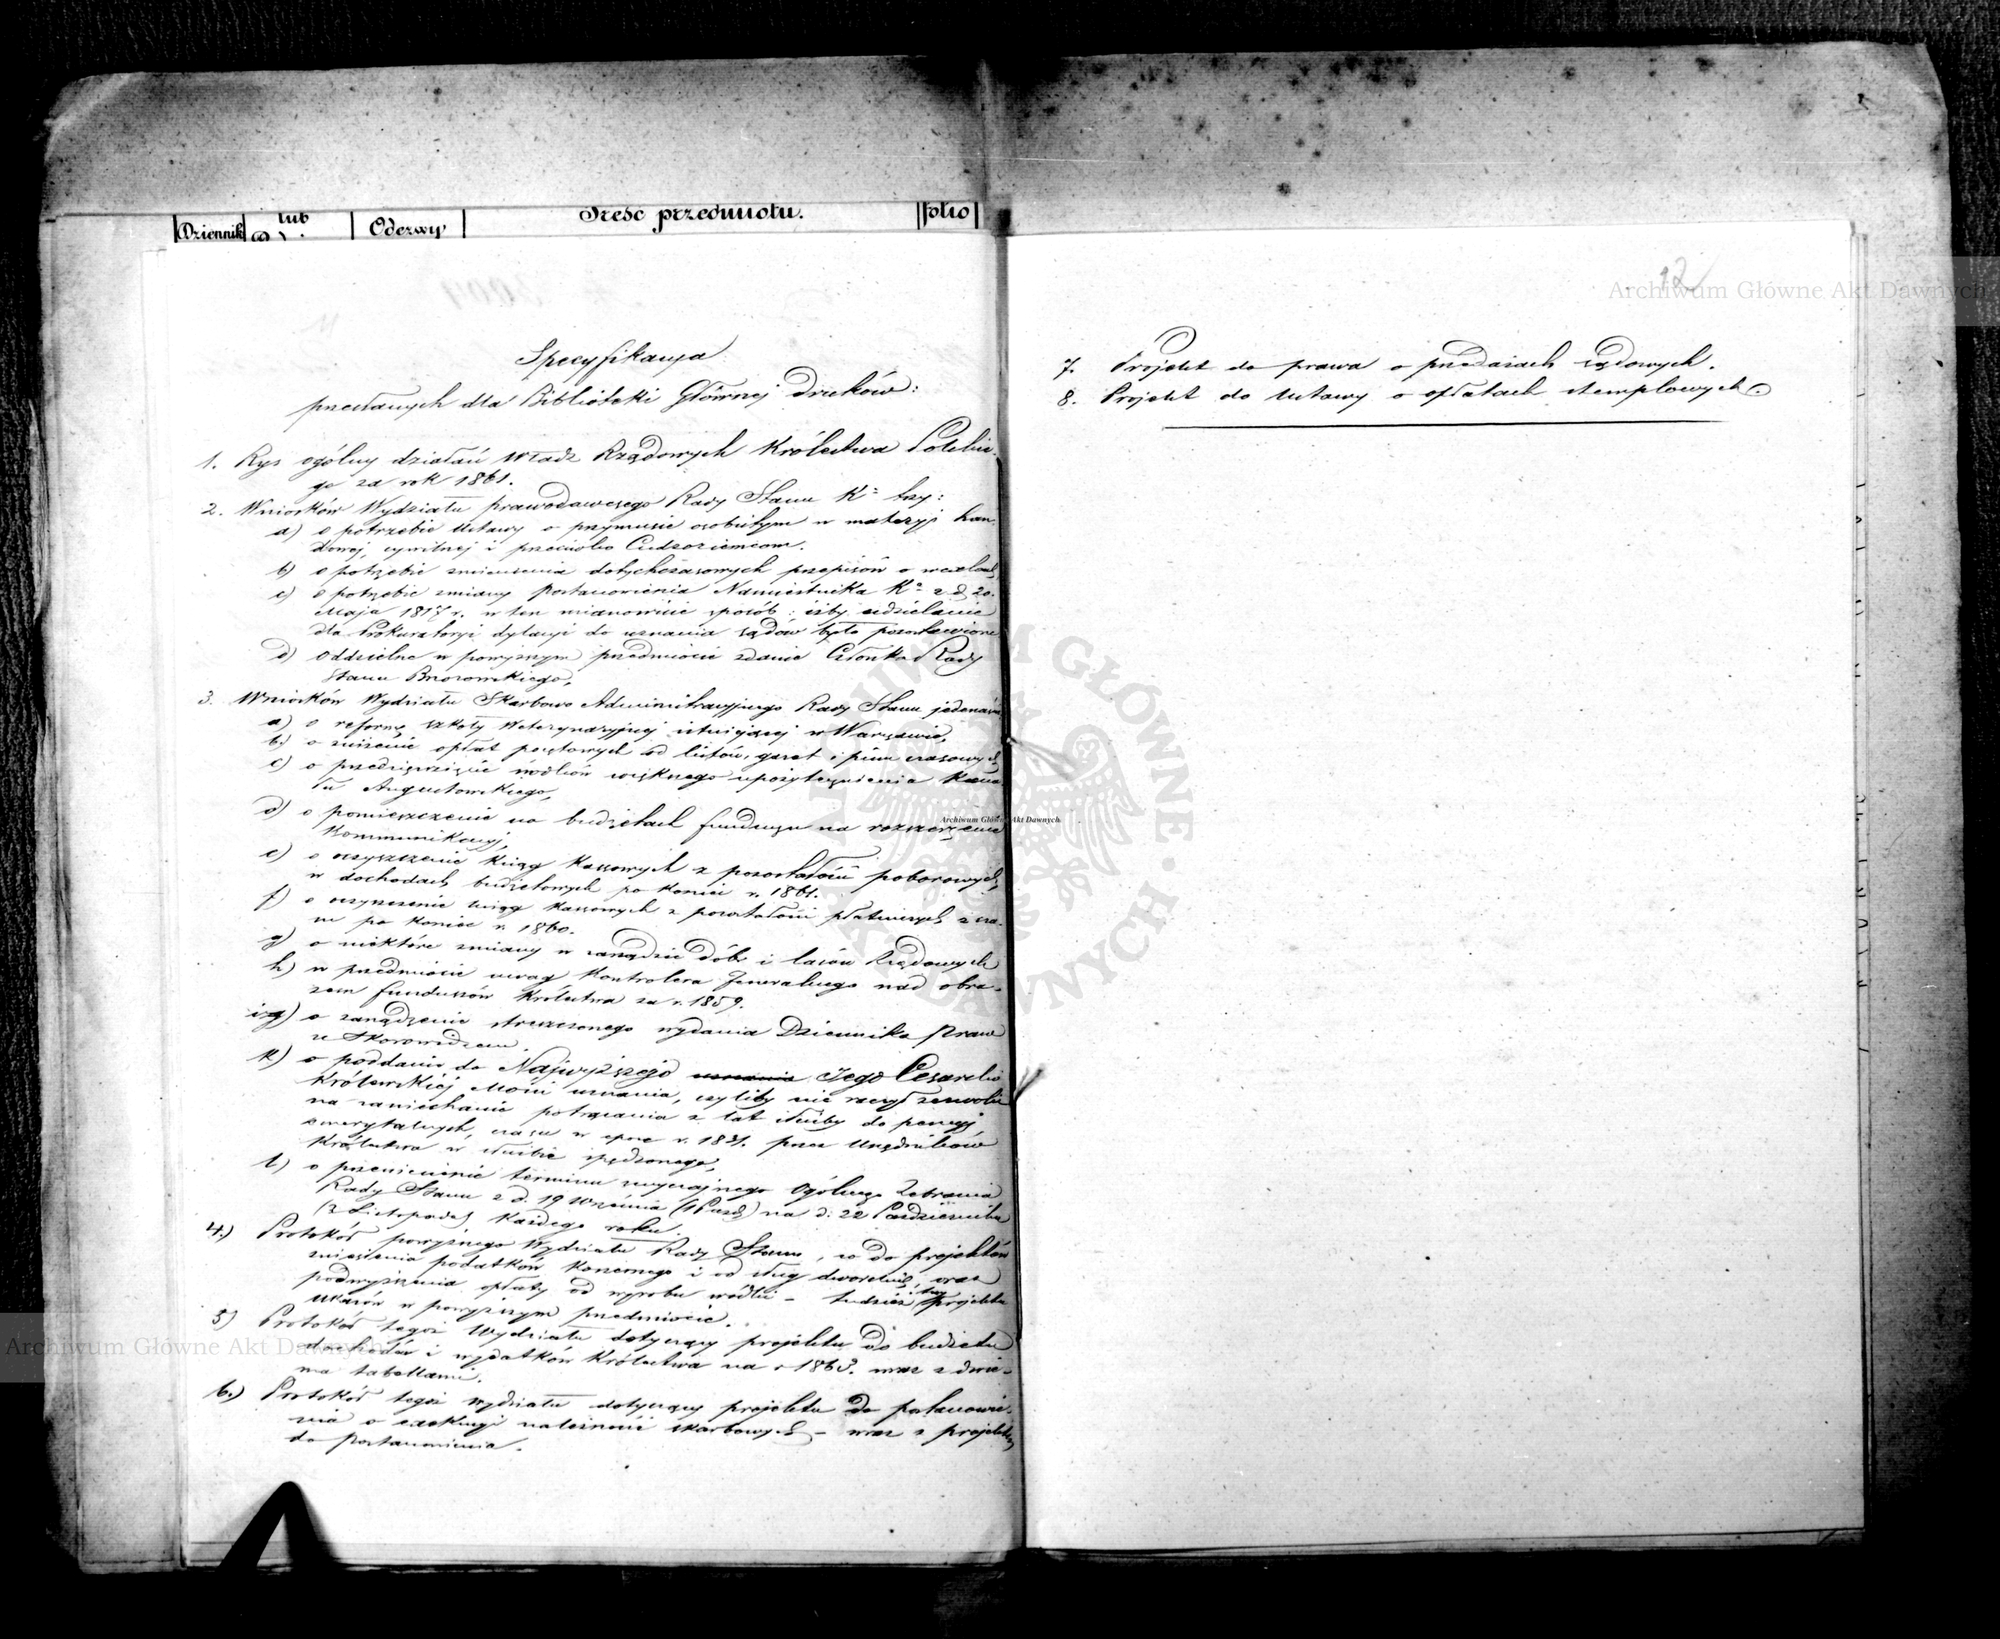 Dziennik
lub
Odezwy
Treść przedmiotu.
folio
Specyfikacja
przesłanych dla Biblioteki Głównej druków:
1. Rys ogólny działań Władz Rządowych Królestwa Polskie-
go za rok 1861.
2. Wniosków Wydziału prawodawczego Rady Stanu Kr
a) o potrzebie Ustawy o przymusie osobistym w materyi han-
dlowej, cywilnej i przeciwko Cudzoziemcom.
b) o potrzebie zmienienia dotychczasowych przepisów o wexlach,
c) o potrzebie zmiany Postanowienia Namiestnika Kr z d. 20.
Maja 1817 r. w ten mianowicie sposób: iżby udzielanie
dla Prokuratoryi dylacyi do uznania sądów było pozostawione
d) Oddzielne w powyższym przedmiocie zdanie Członka Rady
Stanu Brzozowskiego,
3. Wniosków Wydziału Skarbowo Administracyjnego Rady Stanu jedenaście
a) o reformę szkoły Weterynaryjnej istniejącej w Warszawie,
b.) o zniżenie opłat pocztowych od listów, gazet i pism czasowych,
c) o przedsięwzięcie środków większego upożytecznienia Kana-
łu Augustowskiego,
d) o pomieszczenie na budżetach funduszu na rozszerzenie
Kommunikacyj,
e) o oczyszczenie Ksiąg Kassowych z pozostałości poborowych,
w dochodach budżetowych po koniec r. 1861.
f) o oczyszczenie ksiąg Kassowych z pozostałości płatniczych z cza-
su po koniec r. 1860.
g) o niektóre zmiany w zarządzie dóbr i lasów Rządowych
h) w przedmiocie uwag Kontrolera Jeneralnego nad obra-
zem funduszów Królestwa za r. 1859.
i) o zarządzenie streszczonego wydania Dziennika Praw
ze Skorowidzem.
k) o poddanie do Najwyższego uznania Jego Cesarsko
Królewskiéj Mości uznania, czyliby nie raczył zezwolić
na zaniechanie potrącania z lat służby do pensyj
emerytalnych, czasu w epoce r. 1831. przez Urzędników
Królestwa w służbie spędzonego,
l) o przeniesienie terminu zwyczajnego Ogólnego Zebrania
Rady Stanu z d. 19 Września (1 Paźd) na d. 22 Października
(3 Listopada) każdego roku.
4.) Protokół powyższego Wydziału Rady Stanu, co do projektów
zniesienia podatków konsensowego i od sług dworskich, oraz
podwyższenia opłaty od wyrobu wódki – tudzież trzy projekta
Ukazów w powyższym przedmiocie.
5) Protokół tegoż Wydziału dotyczący projektu do budżetu
dochodów i wydatków Królestwa na r 1863. wraz z dwie-
ma tabellami.
6.) Protokół tegoż wydziału dotyczący projektu do postanowie-
nia o exekucyi należności skarbowych – wraz z projektem
do postanowienia.
12
7. Projekt do prawa o przedażach rządowych.
8. Projekt do Ustawy o opłatach stemplowych.
Archiwum Główne Akt Dawnych
Archiwum Główne Akt Dawnych
Archiwum Główne Akt Dawnych
ARCHIWUM GŁÓWNE AKT DAWNYCH